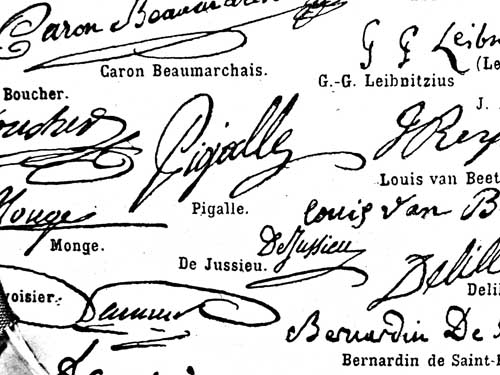 Caron Beaumarchais
Caron Beaumarchais.
G G Leibn
(Le
G.-G. Leibnitzius
Boucher.
J.
oucher
Pigalle
J Rey
Louis van Beet
Pigalle.
Monge
Louis van B
Monge.
De Jussieu
De Jussieu.
Delill
Deli
voisier.
Bernardin De
Bernardin de Saint-